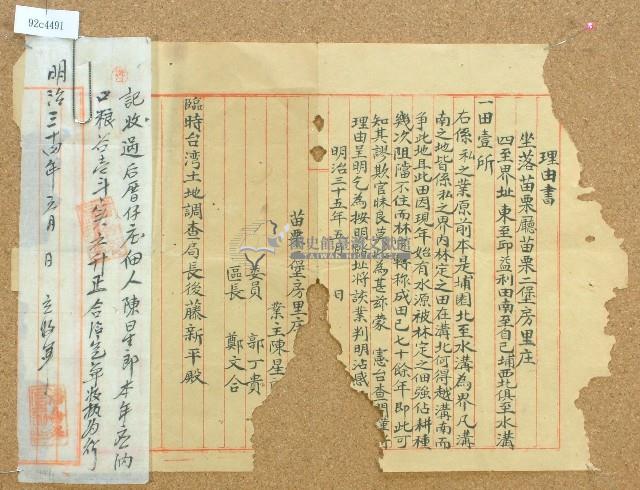 理由書
坐落苗栗廳苗栗二堡房里庄
四至界址 東至邱益利田南至自己埔西北俱至水溝
一田壹所
右係私之業原前本是埔園北至水溝為界凡溝
南之地皆係私之界內林定之田在溝北何得越溝南而
爭此地且此田因現年始有水源被林定之佃強佔耕種
幾次阻擋不住而林 特称成田已七十餘年即此可
知其謬欺官昧良莫 為甚茲蒙 憲台查門
理由呈明乞為按明 址將該業判明沾感
明治三十五年五月 日
苗栗 堡房里庄
業主陳星
委員 郭丁貴
區長 鄭文合
臨時台湾土地調查局長後藤新平殿
92c4491
記收過后厝仔庄佃人陳星郎本年應納
口粮谷壱斗 六升正合給完单收执為行
明治三十四年六月 日 立
臺史館臺灣文獻館
TAIWAN HISTORICA